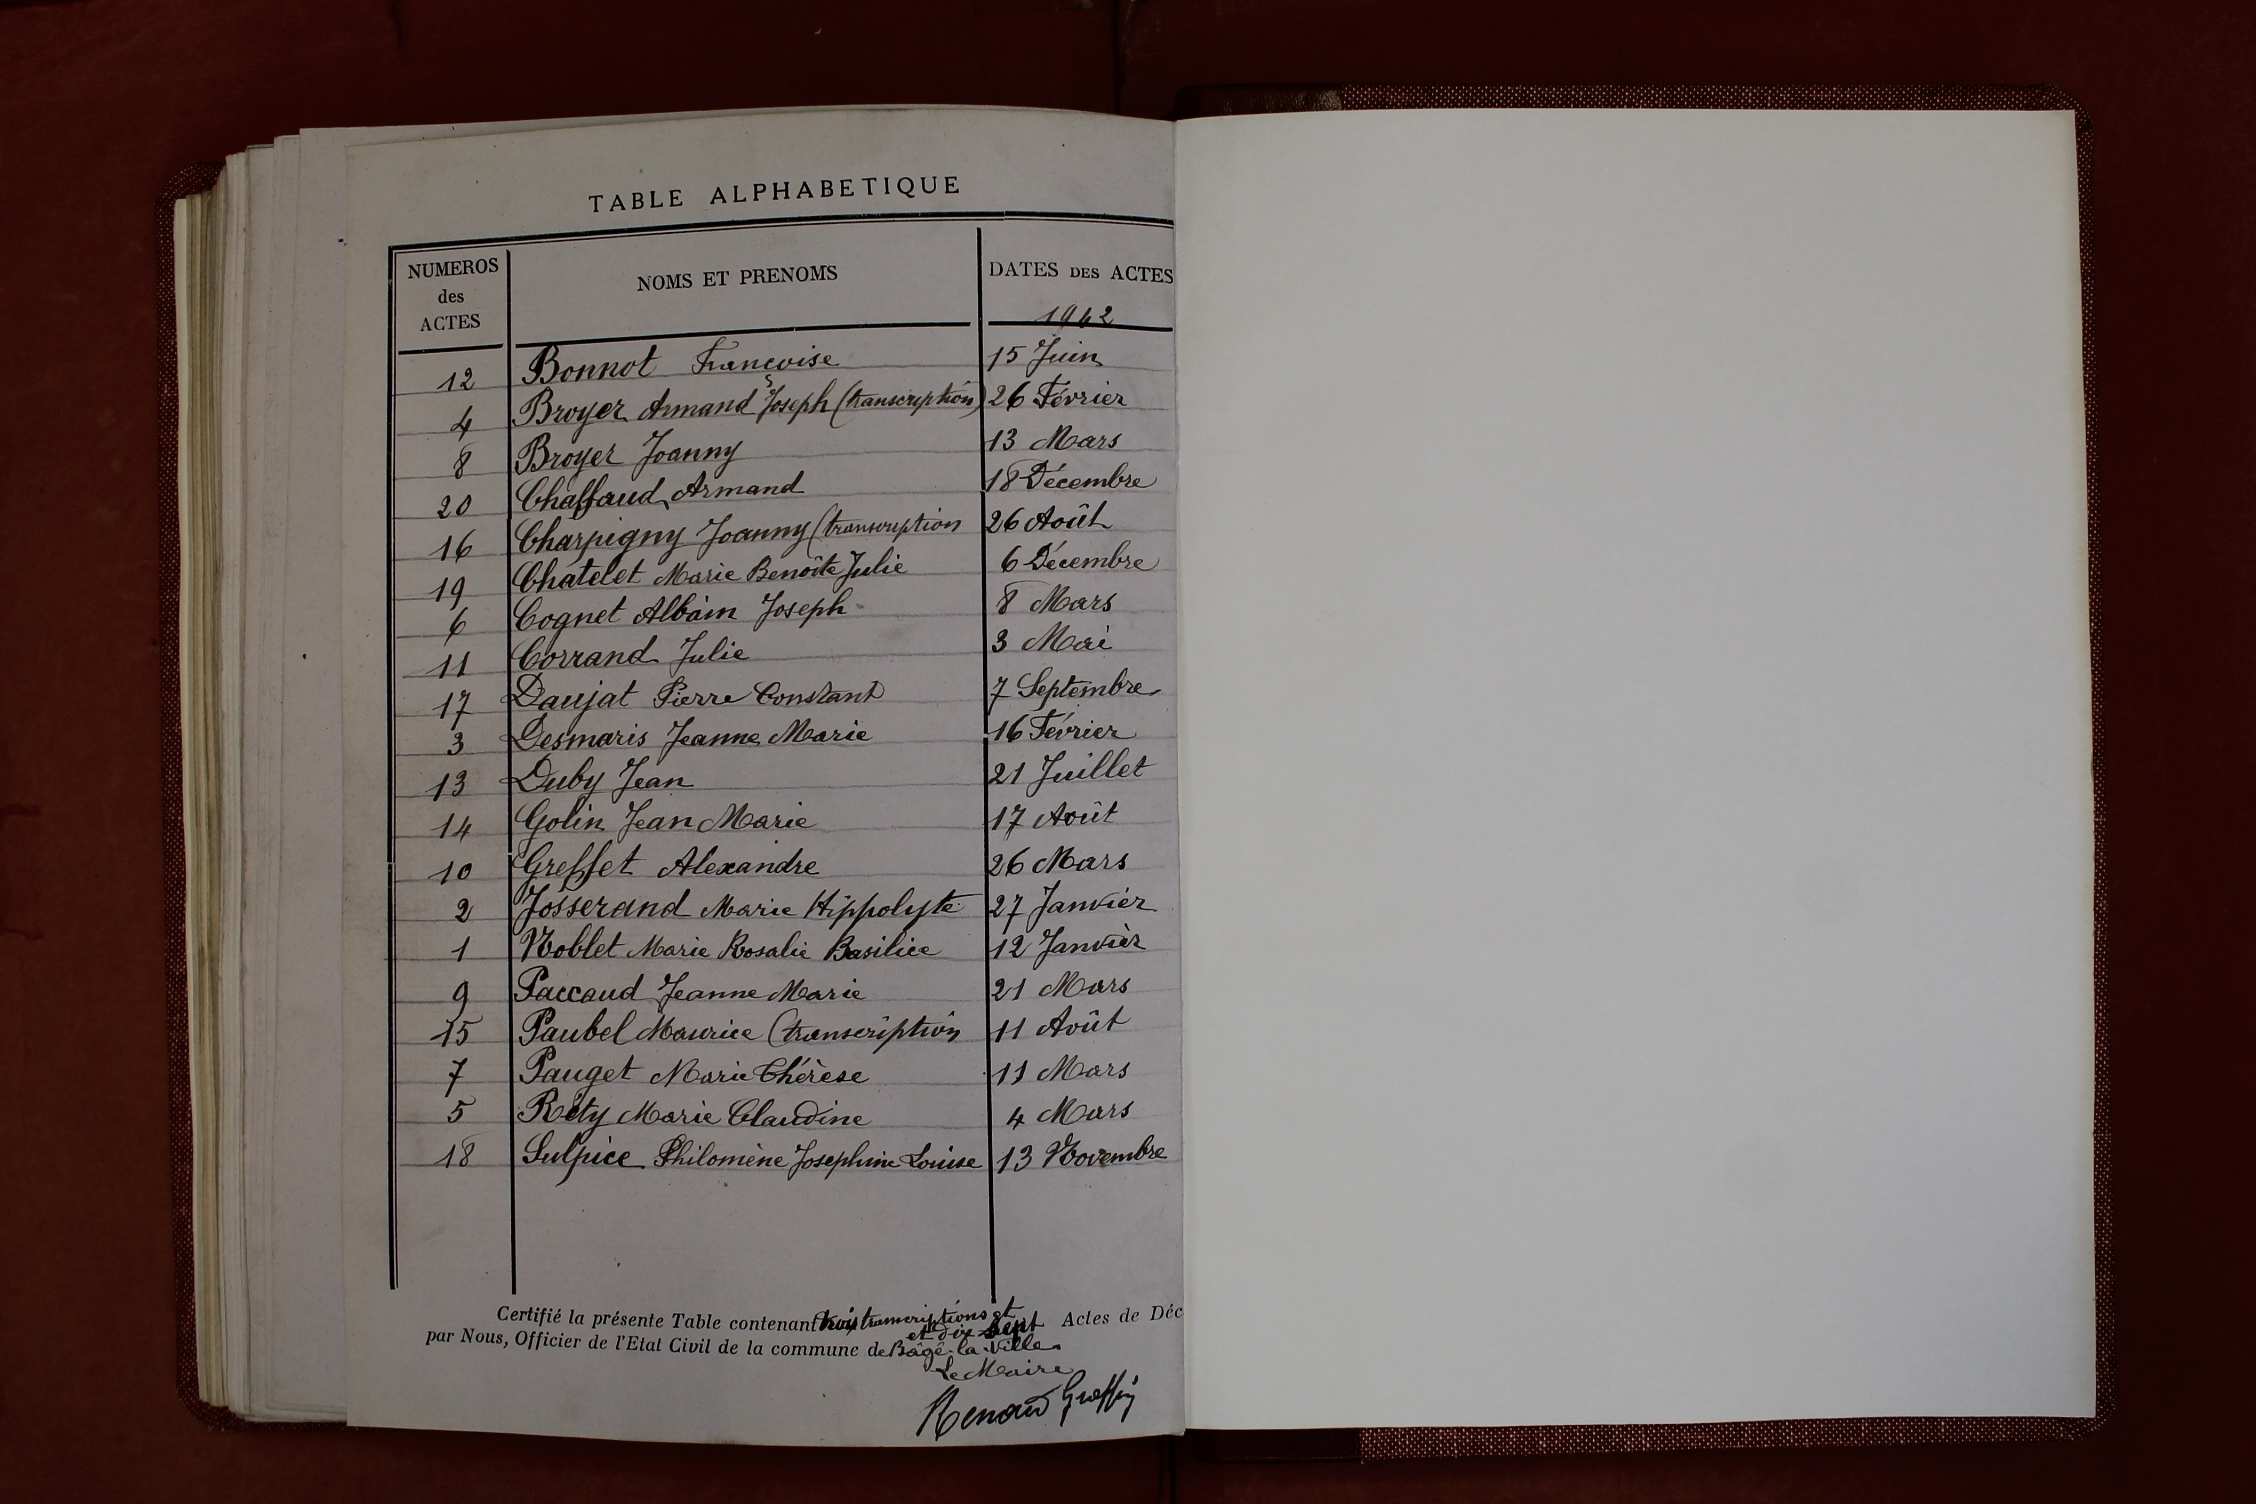 TABLE ALPHABETIQUE
NUMEROS des ACTES NOMS ET PRENOMS DATES DES ACTES
1942
12 Bonnot Françoise 15 Juin
4 Broyer Armand Joseph (transcription) 26 Février
8 Broyer Joanny 13 Mars
20 Chaffaud Armand 18 Décembre
16 Charpigny Joanny (transcription 26 Août
19 Châtelet Marie Benoîte Julie 6 Décembre
6 Cognet Albain Joseph 8 Mars
11 Corrand Julie 3 Mai
17 Daujat Pierre Constant 7 Septembre
3 Desmaris Jeanne Marie 16 Février
13 Duby Jean 21 Juillet
14 Golin Jean Marie 17 Août
10 Greffet Alexandre 26 Mars
2 Josserand Marie Hippolyte 27 Janvier
1 Noblet Marie Rosalie Basilice 12 Janvier
9 Paccaud Jeanne Marie 21 Mars
15 Paubel Maurice (transcription 11 Août
7 Pauget Marie Thérèse 11 Mars
5 Réty Marie Claudine 4 Mars
18 Sulpice Philomène Josephine Louise 13 Novembre
Certifié la présente Table contenant trois transcriptions et
et dix sept Actes de Déc
par Nous, Officier de l'Etat Civil de la commune de Bâgé-la-Ville
Le Maire
Renoud